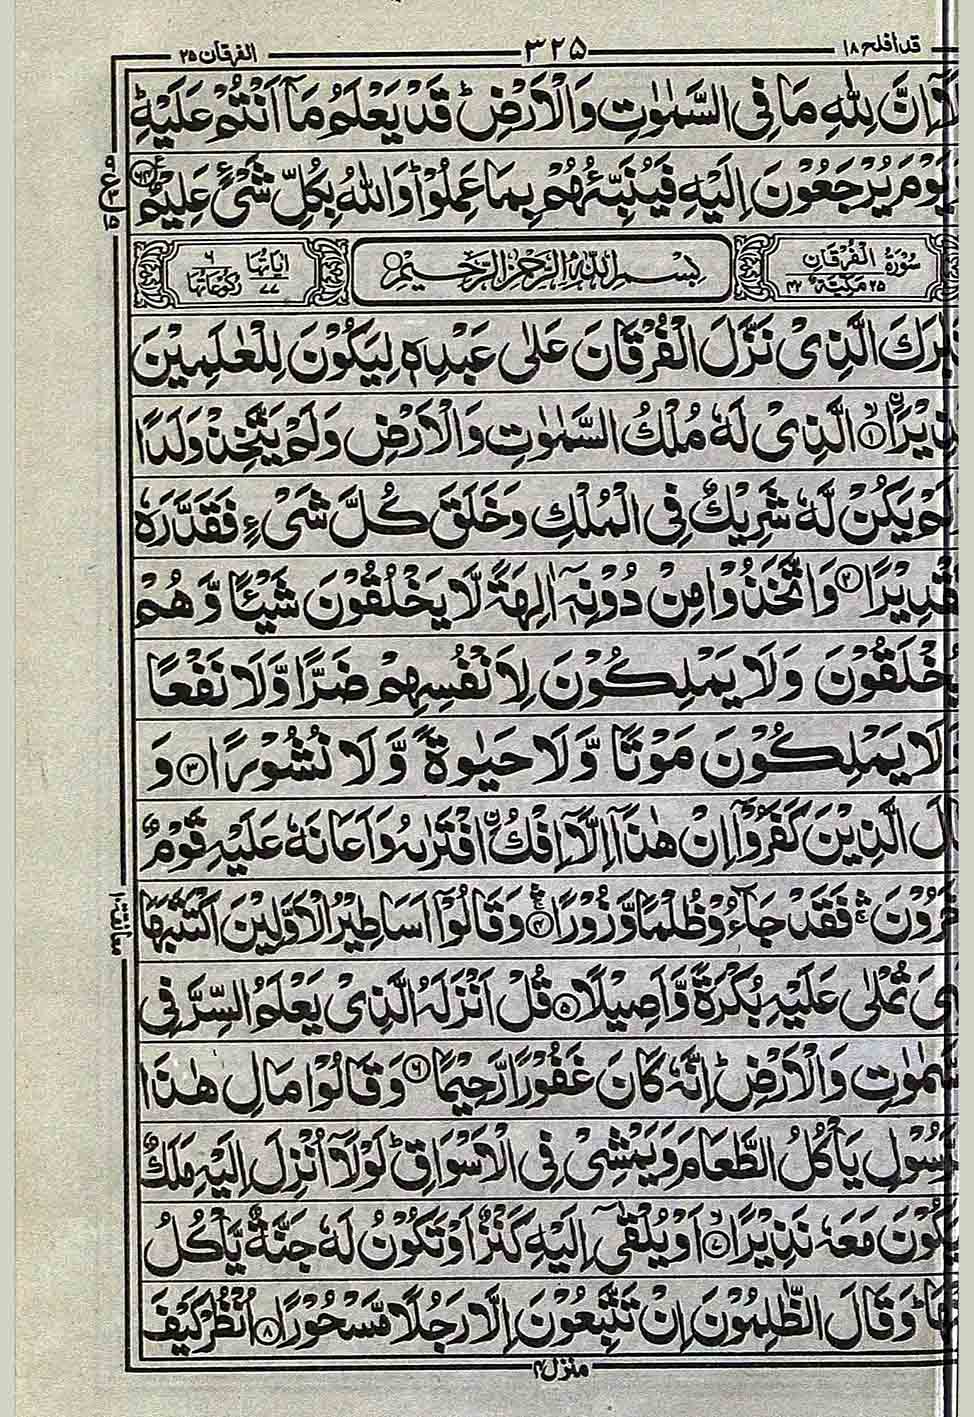 قد افلح ١٨
٣٢٥
الفرقان ٢٥
اَلَاۤ اِنَّ لِلّٰهِ مَا فِی السَّمٰوٰتِ وَالْاَرْضِ ؕ قَدْ یَعْلَمُ مَاۤ اَنْتُمْ عَلَیْهِ ؕ
وَیَوْمَ یُرْجَعُوْنَ اِلَیْهِ فَیُنَبِّئُهُمْ بِمَا عَمِلُوْا ؕ وَاللّٰهُ بِكُلِّ شَیْءٍ عَلِیْمٌ ۶۴
سُوْرَةُ الْفُرْقَانِ ٢٥ مَكِّیَّةٌ ٤٢
بِسْمِ اللّٰهِ الرَّحْمٰنِ الرَّحِیْمِ
اٰیَاتُهَا ٧٧ رُكُوْعَاتُهَا ٦
تَبٰرَكَ الَّذِیْ نَزَّلَ الْفُرْقَانَ عَلٰی عَبْدِهٖ لِیَكُوْنَ لِلْعٰلَمِیْنَ
نَذِیْرَا ۙ﴿١﴾ الَّذِیْ لَهٗ مُلْكُ السَّمٰوٰتِ وَالْاَرْضِ وَلَمْ یَتَّخِذْ وَلَدًا
وَّلَمْ یَكُنْ لَّهٗ شَرِیْكٌ فِی الْمُلْكِ وَخَلَقَ كُلَّ شَیْءٍ فَقَدَّرَهٗ
تَقْدِیْرًا ﴿٢﴾ وَاتَّخَذُوْا مِنْ دُوْنِهٖۤ اٰلِهَةً لَّا یَخْلُقُوْنَ شَیْـًٔا وَّهُمْ
یُخْلَقُوْنَ وَلَا یَمْلِكُوْنَ لِاَنْفُسِهِمْ ضَرًّا وَّلَا نَفْعًا
وَّلَا یَمْلِكُوْنَ مَوْتًا وَّلَا حَیٰوةً وَّلَا نُشُوْرًا ﴿٣﴾ وَ
قَالَ الَّذِیْنَ كَفَرُوْۤا اِنْ هٰذَاۤ اِلَّاۤ اِفْكُ ِ۟افْتَرٰىهُ وَاَعَانَهٗ عَلَیْهِ قَوْمٌ
اٰخَرُوْنَ ۛۚ فَقَدْ جَآءُوْ ظُلْمًا وَّزُوْرًا ۛۚ﴿٤﴾ وَقَالُوْۤا اَسَاطِیْرُ الْاَوَّلِیْنَ اكْتَتَبَهَا
فَهِیَ تُمْلٰی عَلَیْهِ بُكْرَةً وَّاَصِیْلًا ﴿٥﴾ قُلْ اَنْزَلَهُ الَّذِیْ یَعْلَمُ السِّرَّ فِی
السَّمٰوٰتِ وَالْاَرْضِ ؕ اِنَّهٗ كَانَ غَفُوْرًا رَّحِیْمًا ﴿٦﴾ وَقَالُوْا مَالِ هٰذَا
الرَّسُوْلِ یَاْكُلُ الطَّعَامَ وَیَمْشِیْ فِی الْاَسْوَاقِ ؕ لَوْلَاۤ اُنْزِلَ اِلَیْهِ مَلَكٌ
فَیَكُوْنَ مَعَهٗ نَذِیْرًا ۙ﴿٧﴾ اَوْ یُلْقٰۤی اِلَیْهِ كَنْزٌ اَوْ تَكُوْنُ لَهٗ جَنَّةٌ یَّاْكُلُ
مِنْهَا ؕ وَقَالَ الظّٰلِمُوْنَ اِنْ تَتَّبِعُوْنَ اِلَّا رَجُلًا مَّسْحُوْرًا ﴿٨﴾ اُنْظُرْ كَیْفَ
منزل ٤